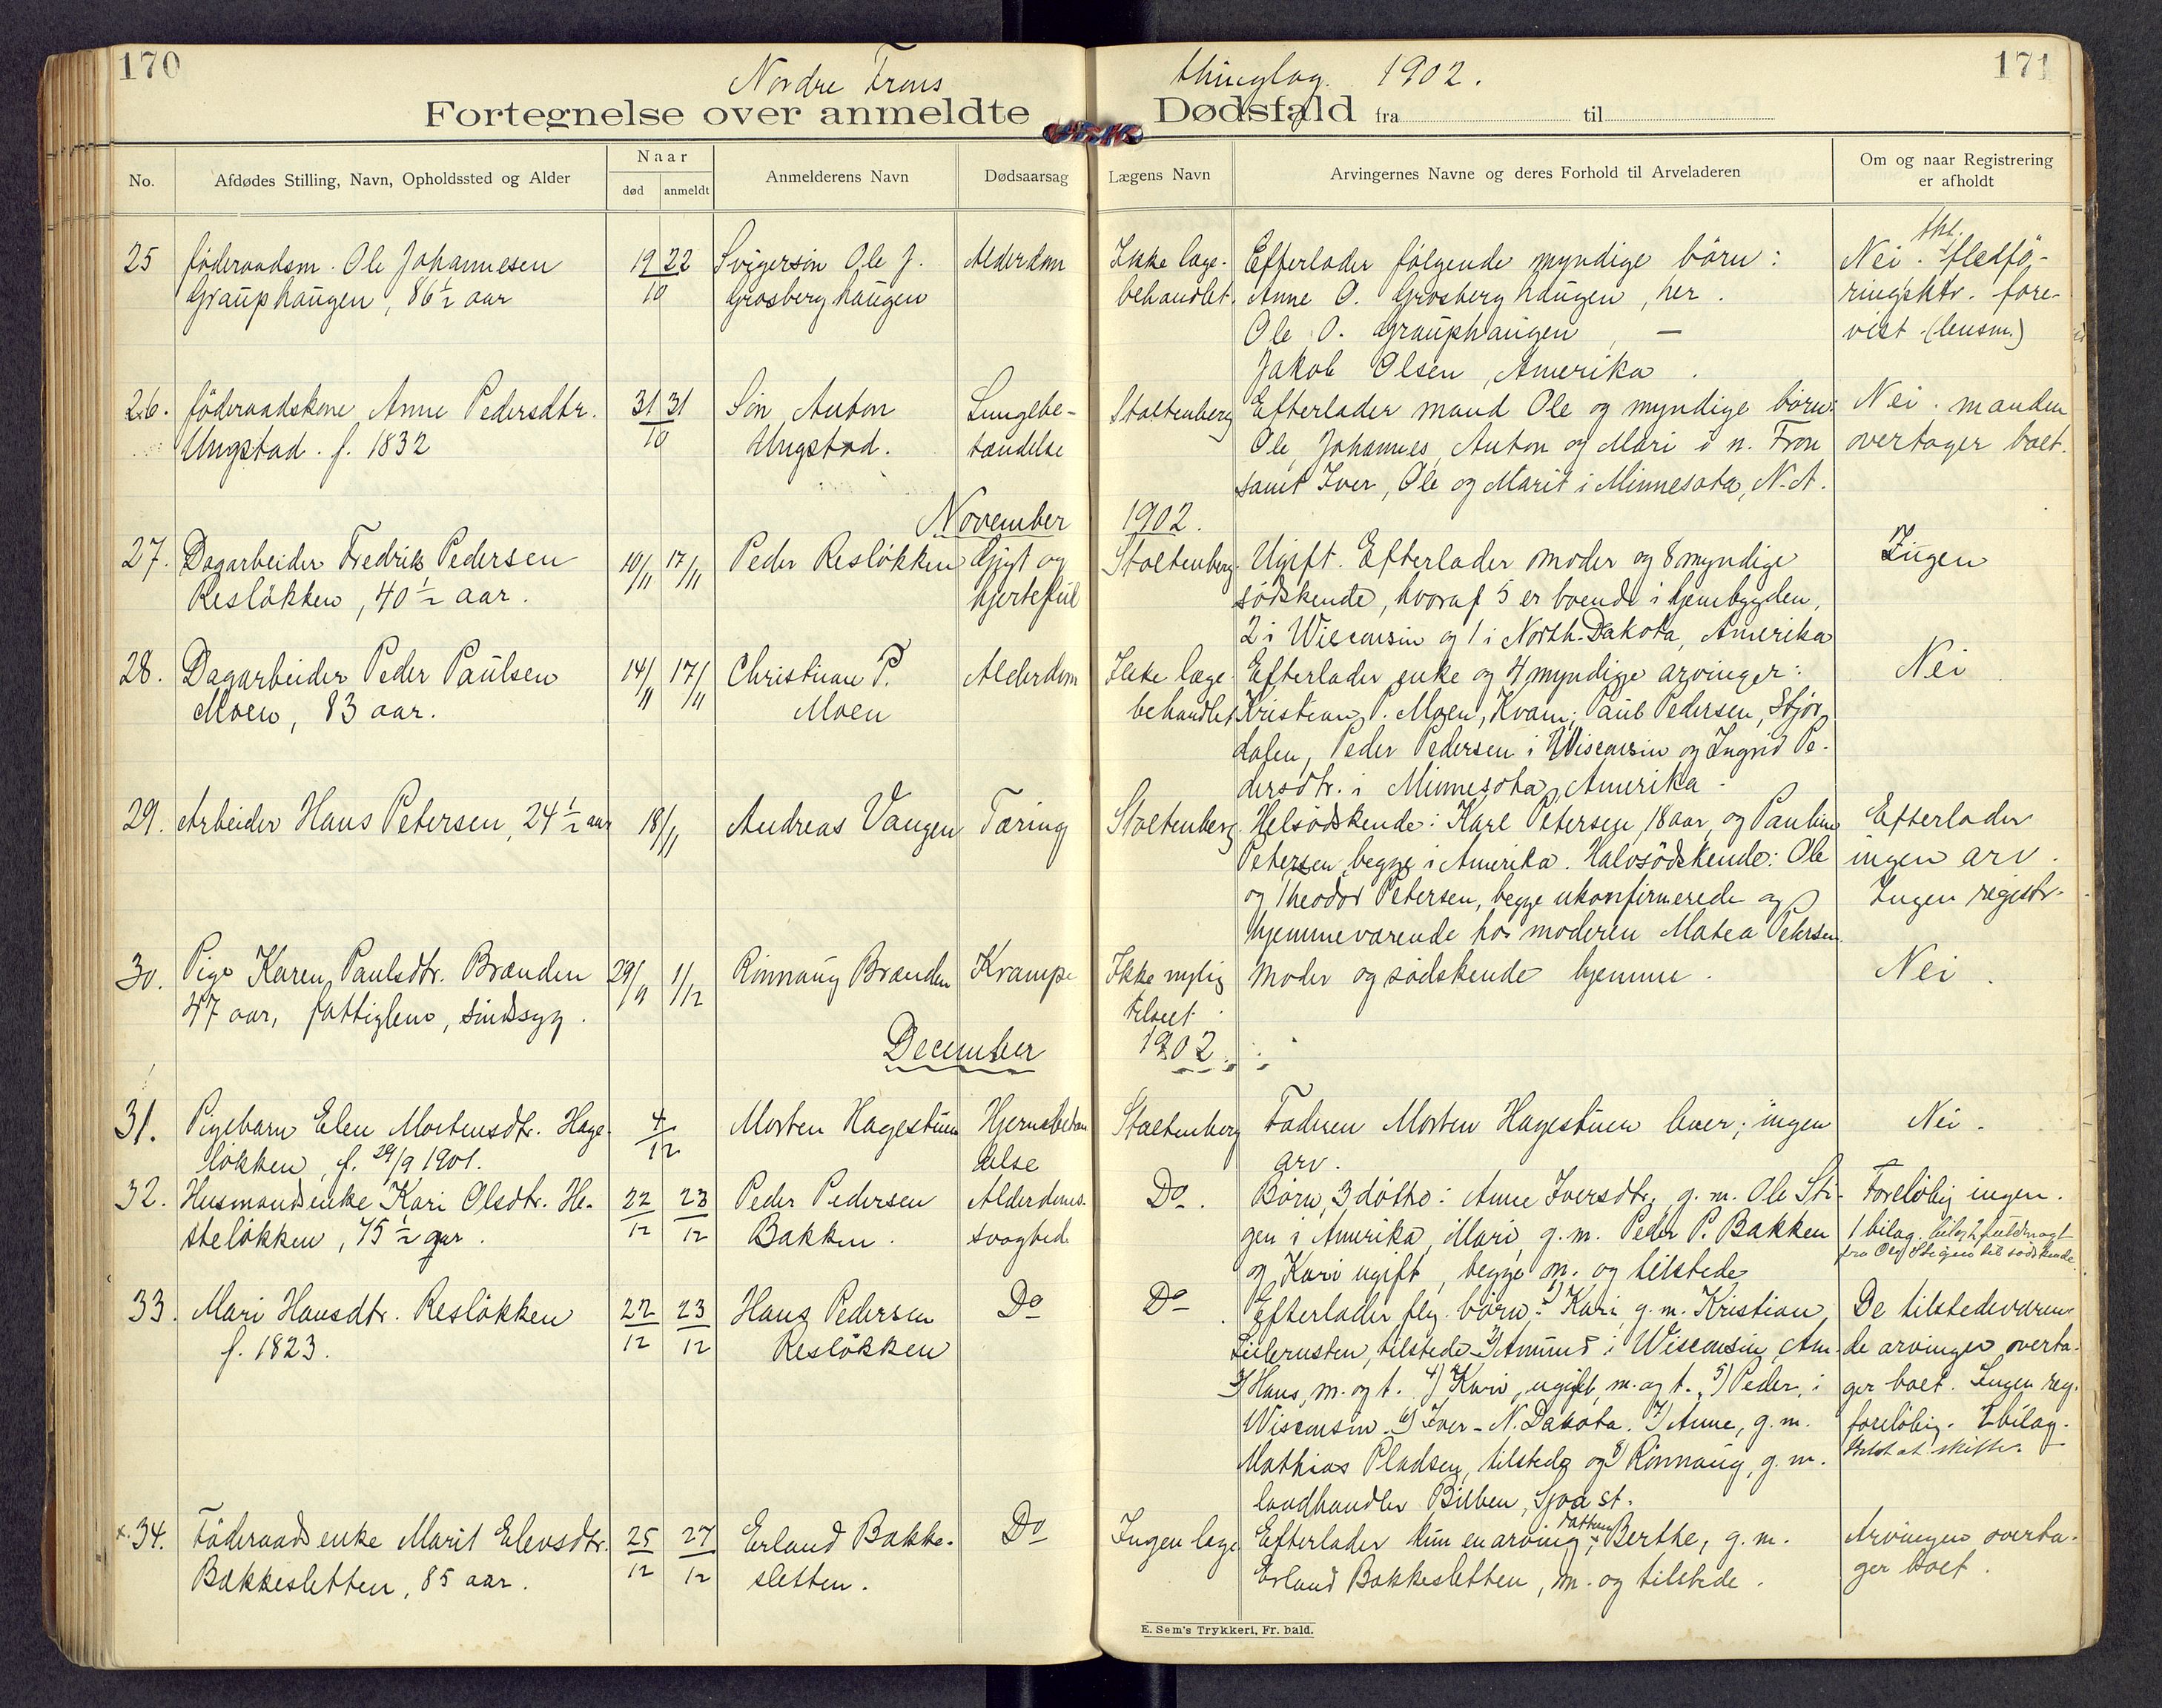 170
Nordre Frons
Fortegnelse over anmeldte
thinglag. 1902.
Dødsfald fra til
171
No.
Afdødes Stilling, Navn, Opholdssted og Alder
Naar
død
anmeldt
Anmelderens Navn
Dødsaarsag
Lægens Navn
Arvingernes Navne og deres Forhold til Arveladeren
Om og naar Registrering
er afholdt
25
føderaadsm. Ole Johannesen
Grauphaugen, 86½ aar
19/10
22
Svigersøn Ole J.
Grosberghaugen
Alderdom
Ikke læge-
behandlet.
Efterlader følgende myndige børn:
Anne O. Grosberghaugen, her.
Ole O. Grauphaugen, —
Jakob Olsen, Amerika.
Nei. fledfø-
ringsktr. fore-
vist (lensm.)
26.
føderaadskone Anne Pedersdtr.
Ungstad. f. 1832
31/10
31
Søn Anton
Ungstad.
Lungebe-
tændelse
Stoltenberg
Efterlader mand Ole og myndige børn:
Ole, Johannes, Anton og Mari i n. Fron
samt Iver, Ole og Marit i Minnesota, N.A.
Nei. manden
overtager boet.
November
1902.
27.
Dagarbeider Fredrik Pedersen
Resløkken, 40½ aar.
10/11
17/11
Peder Resløkken
Gigt og
hjertefeil
Stoltenberg.
Ugift. Efterlader moder og 8 myndige
sødskende, hvoraf 5 er boende i hjembygden,
2 i Wisconsin og 1 i North-Dakota, Amerika
Ingen
28.
Dagarbeider Peder Paulsen
Moen, 83 aar.
14/11
17/11
Christian P.
Moen
Alderdom
Ikke læge
behandlet
Efterlader enke og 4 myndige arvinger:
Kristian P. Moen, Kvam; Paul Pedersen, Stjør-
dalen, Peder Pedersen i Wisconsin og Ingrid Pe-
dersdtr. i Minnesota, Amerika.
Nei
29.
Arbeider Hans Petersen, 24½ aar
18/11
Andreas Vangen
Tæring
Stoltenberg.
Helsødskende: Karl Petersen, 18 aar, og Pauline
Petersen begge i Amerika. Halvsødskende: Ole
og Theodor Petersen, begge ukonfirmerede og
hjemmeværende hos moderen Matea Petersen.
Efterlader
ingen arv.
Ingen registr.
30.
Pige Karen Paulsdtr. Brænden
47 aar, fattiglem, sindssyg.
29/11
1/12
Rønnaug Brænden
Krampe
Ikke nylig
tilseet.
Moder og sødskende hjemme.
Nei.
December
1902.
31.
Pigebarn Elen Mortensdtr. Hage-
løkken, f. 29/9 1901.
4/12
Morten Hagestuen
Hjernebetæn
delse
Stoltenberg
Faderen Morten Hagestuen lever; ingen
arv.
Nei.
32.
Husmandsenke Kari Olsdtr. He-
steløkken, 75½ aar.
22/12
23/12
Peder Pedersen
Bakken.
Alderdoms-
svaghed.
Do.
Børn, 3 døttre: Anne Iversdtr, g. m. Ole Sti-
gen i Amerika, Mari, g. m. Peder P. Bakken
og Kari ugift, begge m. og tilstede
Foreløbig ingen.
1 bilag. bilag 2 fuldmagt
fra Ole Stigen til sødskende.
33.
Mari Hansdtr. Resløkken
f. 1823.
22/12
23/12
Hans Pedersen
Resløkken
Do
Do
Efterlader flg. børn: 1) Kari, g. m. Kristian
tilstede 2) Amund i Wisconsin, Am.
3) Hans, m. og t. 4) Kari, ugift, m. og t. 5) Peder, i
Wisconsin. 6) Iver - N. Dakota. 7) Anne, g. m.
Mathias Pladsen, tilstede og 8) Rønnaug, g. m.
landhandler Bilben, Sjoa st.
De tilstedeværen-
de arvinger overta-
ger boet. Ingen reg.
foreløbig. bilag.
x. 34.
Føderaadsenke Marit Elevsdtr.
Bakkesletten, 85 aar.
25/12
27/12
Erland Bakke-
sletten.
Do
Ingen læge
Efterlader kun en arving, datteren Berthe, g. m.
Erland Bakkesletten, m. og tilstede.
Arvingen overta-
ger boet.
E. Sem's Trykkeri, Fr. hald.